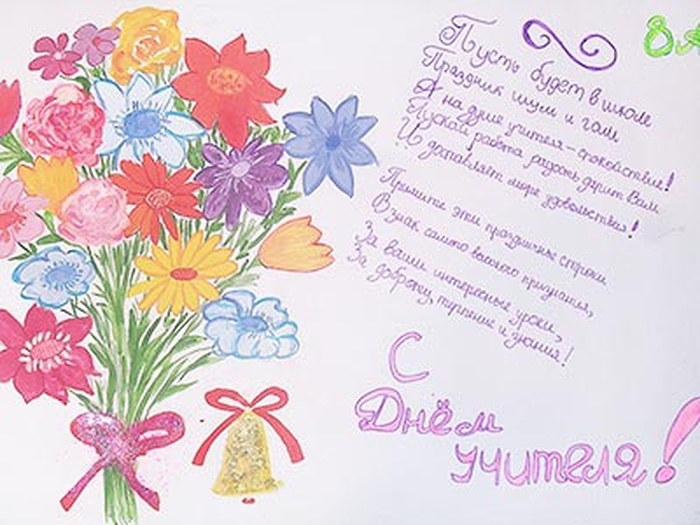 8А
Пусть будет в школе
Праздник шум и гам
А на душе учителя – спокойствие!
Пускай работа радость дарит Вам
И доставляет море удовольствия!
Примите эти праздничные строки
В знак самого высокого признания,
За ваши интересные уроки,
За доброту, терпение и знания!
С
Днём
учителя!